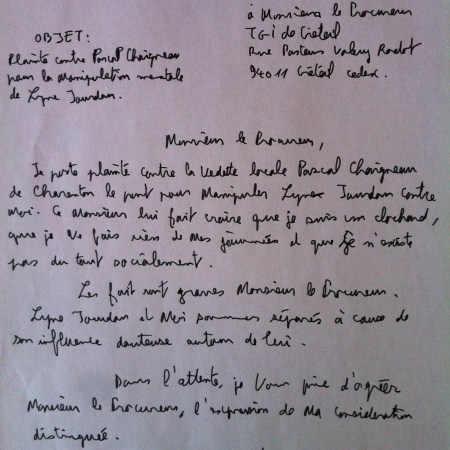 à Monsieur le Procureur
TGI de Créteil
Rue Pasteur Valery Radot
94011 Créteil cedex.
OBJET:
Plainte contre Pascal Choigneau
pour la Manipulation mentale
de Lyne Jourdan.
Monsieur le Procureur,
Je porte plainte contre la vedette locale Pascal Choigneau
de Charenton le pont pour Manipuler Lyne Jourdan contre
Moi. Ce Monsieur lui fait croire que je suis un clochard,
que je ne fais rien de mes journées et que je n'existe
pas du tout socialement.
Les fait sont graves Monsieur le Procureur.
Lyne Jourdan et Moi sommes séparés à cause de
son influence douteuse autour de lui.
Dans l'attente, je Vous prie d'agréer
Monsieur le Procureur, l'expression de Ma considération
distinguée.